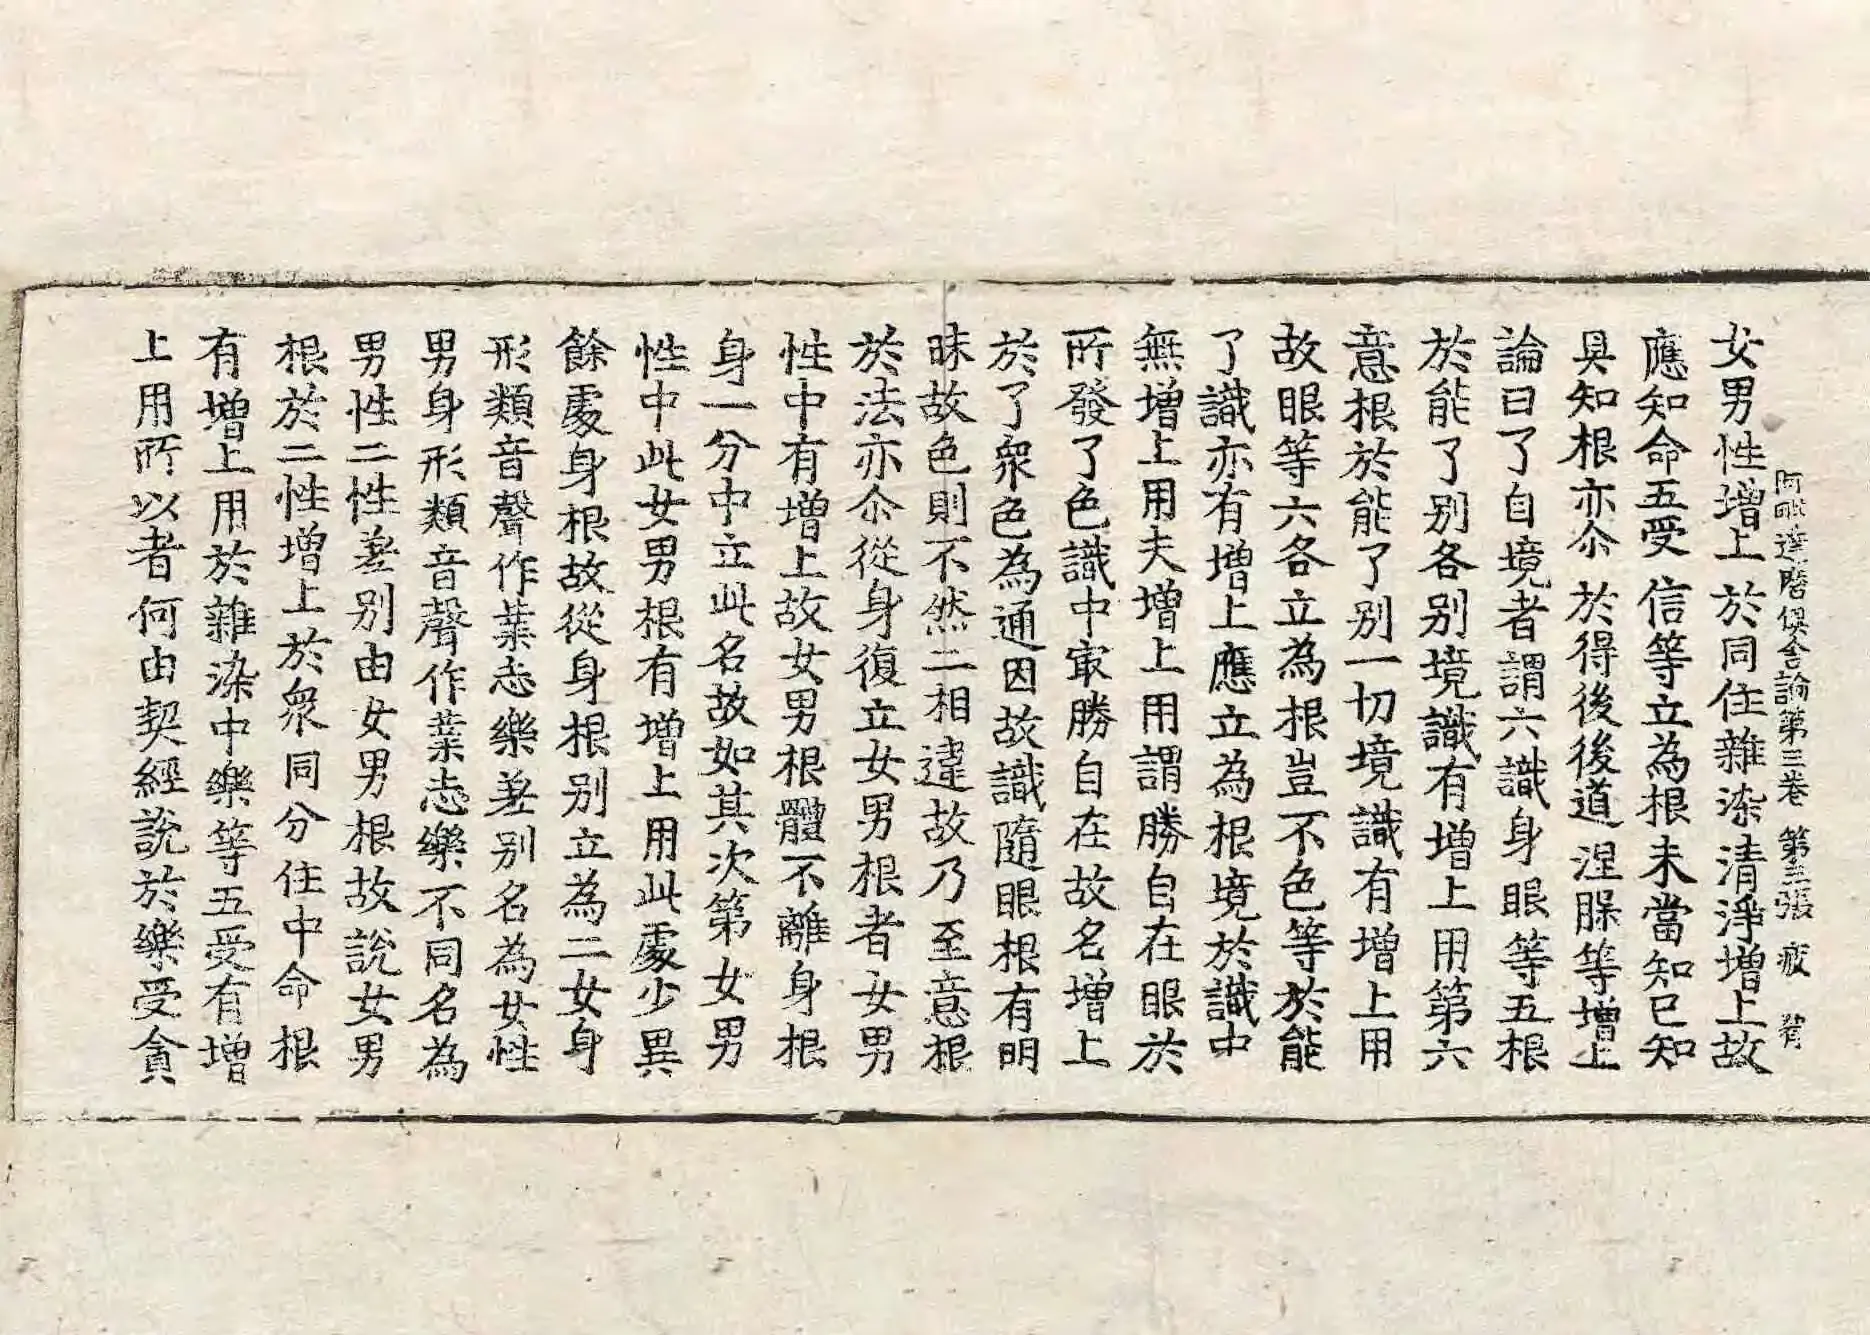 阿毗達磨俱舍論第三卷 第三張 疲
女男性增上 於同住雜染清淨增上故
應知命五受 信等立為根未當知已知
具知根亦尒 於得後後道 涅脲等增上
論曰了自境者謂六識身眼等五根
於能了别各别境識有增上用第六
意根於能了别一切境識有增上用
故眼等六各立為根豈不色等於能
了識亦有增上應立為根境於識中
無增上用夫增上用謂勝自在眼於
所發了色識中㝡勝自在故名增上
於了衆色為通因故識隨眼根有明
昧故色則不然二相違故乃至意根
於法亦尒從身復立女男根者女男
性中有增上故女男根體不離身根
身一分中立此名故如其次第女男
性中此女男根有增上用此處少異
餘處身根故從身根别立為二女身
形類音聲作業志樂差别名為女性
男身形類音聲作業志樂不同名為
男性二性差别由女男根故說女男
根於二性增上於衆同分住中命根
有增上用於雜染中樂等五受有增
上用所以者何由契經說於樂受貪